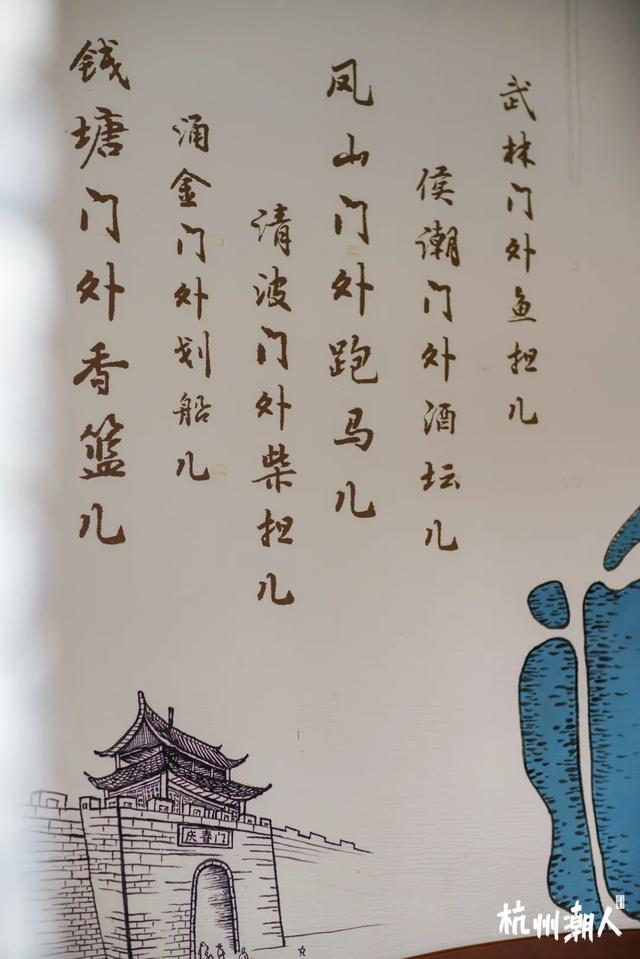 武林门外鱼担儿
侯潮门外酒坛儿
凤山门外跑马儿
清波门外柴担儿
涌金门外划船儿
钱塘门外香篮儿
庆春门
杭州潮人